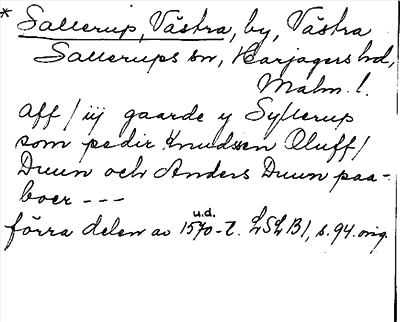 * Sallerup, Västra, by, Västra
Sallerups sn, Harjagers hd,
Malm. l.
aff / iij gaarde y Syllerup
som pedir Knudsen Oluff /
Duun och Anders Duun paa-
boer ---
u.d.
förra delen av 1570-t. LSLB1, s. 94. orig.